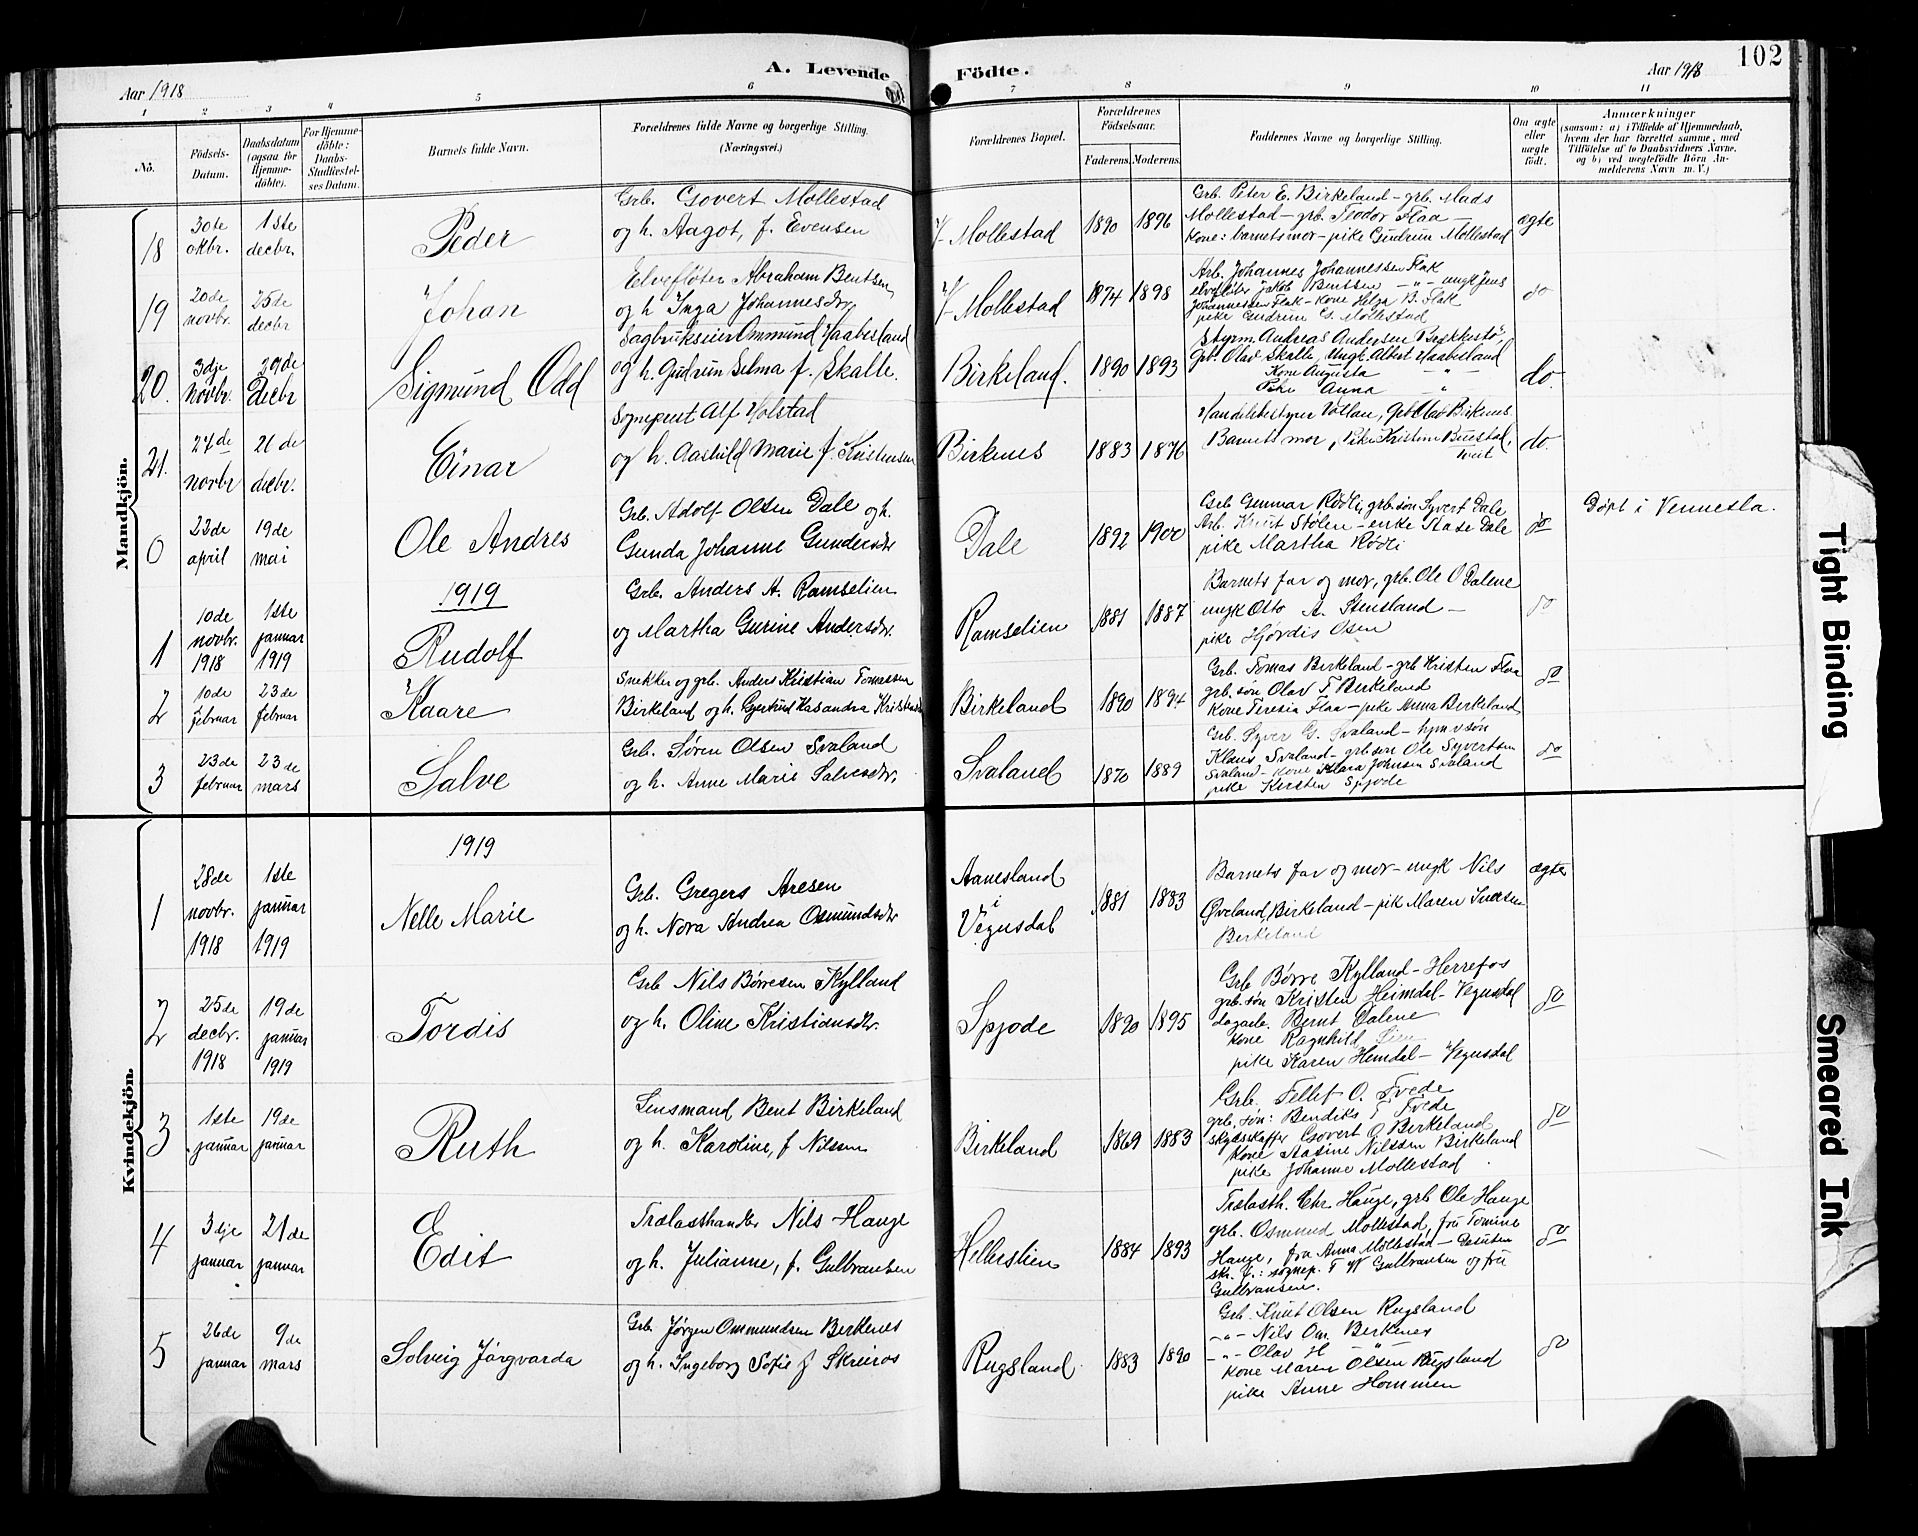 102
A. Levende Födte.
Aar 1918
Aar 1918
1 2 3 4 5 6 7 8 9 10 11
No.
Födsels-Datum.
Daabsdatum (ogsaa for Hjemmedöbte).
For Hjemmedöbte: Daabs-Stadfæstelses Datum.
Barnets fulde Navn.
Forældrenes fulde Navne og borgerlige Stilling. (Næringsvei.)
Forældrenes Bopæl.
Forældrenes Födselsaar.
Faderens. Moderens.
Faddernes Navne og borgerlige Stilling.
Om ægte eller uægte födt.
Anmærkninger
(saasom: a) i Tilfælde af Hjemmedaab, hvem der har forrettet samme, med Tilföielse af to Daabsvidners Navne, og b) ved uegtefödte Börn Anmelderens Navn m. V.)
Mandkjön.
18 30te oktbr. 1ste decbr. Peder
Grb. Govert Mollestad
og h. Aagot, f. Evensen
Mollestad 1890 1896
Grb. Peter E. Birkeland - grb. Mads
Mollestad - grb. Teodor Flaa -
Kone: barnets mor - pike Gudrun Mollestad
ægte
19 20de novbr. 25de decbr Johan
Elvefløter Abraham Bentsen
og h Inga Johannesdtr.
Mollestad 1874 1898
Arb. Johannes Johannessen Flak
elvefløter Jakob Bentsen - " - ungk Jens
Johannessen Flak - kone Helga B. Flak
pike Gudrun G. Mollestad
do
20. 3dje novbr. 29de Decbr Sigmund Odd
Sagbrukseier Ommund Haaberland
og h. Gudrun Selma f. Skalle.
Birkeland. 1890 1893
Styrm. Andreas Andersen Brekkestö
Grb. Olav Skalle, Ungk Albert Haabeland
Kone Augusta - " -
Pike Anna "
do.
21. 27de novbr 26de decbr. Einar
Sogneprest Alf Holstad
og h. Aashild Marie f. Kristensen
Birkenes 1883 1876
Handelsbestyrer Vatlan, Grb Olad Birkenes
Barnets mor, Pike Kristine Buestad,
do.
0 23de april 19de mai Ole Andres
Grb. Adolf Olsen Dale og h.
Gunda Johanne Gundersdtr
Dale 1892 1900
Grb Gunnar Rødli, grb. søn Syvert Dale
Arb. Knut Stølen - enke Aase Dale
pike Martha Rødli
do
Døpt i Vennesla.
1919
1 10de novbr. 1918 1ste januar 1919 Rudolf
Grb. Anders A. Ramselien
og Martha Gurine Andersdtr.
Ramselien 1881 1887
Barnets far og mor, grb. Ole O Dalene
ungk Otto A. Stensland -
pike Hjørdis Osen
do
2 10de februar 23de februar Kaare
Snekker og grb. Anders Kristian Tomassen
Birkeland og h. Gjertrud Kasandra
Birkeland 1890 1894
Grb. Tomas Birkeland - grb Kristen Flaa
grb. søn Olav T Birkeland
Kone Teresia Flaa - pike Anna Birkeland
do
3 23de februar 23de mars Salve
Grb. Søren Olsen Svaland
og h. Anne Marie Salvesdtr.
Svaland 1870 1889
Grb. Syver G. Svaland - hjmv søn
Klaus Svaland - grb søn Ole Syvertsen
Svaland - kone Klara Johnsen Svaland
pike Kirsten Spjode
do
Kvindekjön.
1919
1 28de novbr. 1918 1ste januar 1919 Nelle Marie
Grb. Gregers Aresen
og h. Nora Andrea Osmundsdtr
Aanesland i Vegusdal 1881 1883
Barnets far og mor - ungk Nils
Øveland, Birkeland - pik Maren
Birkeland
ægte
2 25de decbr. 1918 19de januar 1919 Tordis
Grb Nils Børresen Kylland
og h. Oline Kristiansdtr.
Spjode 1890 1895
Grb Børre Kylland - Herrefos
grb. søn Kristen Heimdal - Vegusdal
dagarb. Bernt Dalene
kone Ragnhild
pike Karen Hemdal - Vegusdal
do
3 1ste januar 19de januar Ruth
Lensmand Bent Birkeland
og h. Karoline, f Nilssen
Birkeland 1869 1883
Grb. Tellef O. Tvede
grb. søn: Bendiks T Tvede
skydsskaffer Govert O Birkeland
kone Aasine Nilssen Birkeland
pike Johanne Mollestad
do
4 3dje januar 21de januar Edit
Trælasthandler Nils Hauge
og h. Julianne, f. Gulbransen
Hellerslien 1884 1893
Trælasth. Chr Hauge, grb Ole Hauge
grb. Osmund Mollestad, fru Tomine
Hauge, fra Anna Mollestad -
skr. f.: sognep. T W Gulbransen og fru
Gulbransen.
do
5 26de januar 9de mars Solveig Jørgvarda
Grb. Jørgen Ommundsen Birkenes
og h. Ingeborg Sofie f Skreiros
Rugsland 1883 1890
Grb. Knut Olsen Rugsland
- " - Nils Om. Birkenes
- " - Olav H - " -
Kone Maren Olsen Rugsland
pike Anne Hommen
do
Tight Binding
Smeared Ink